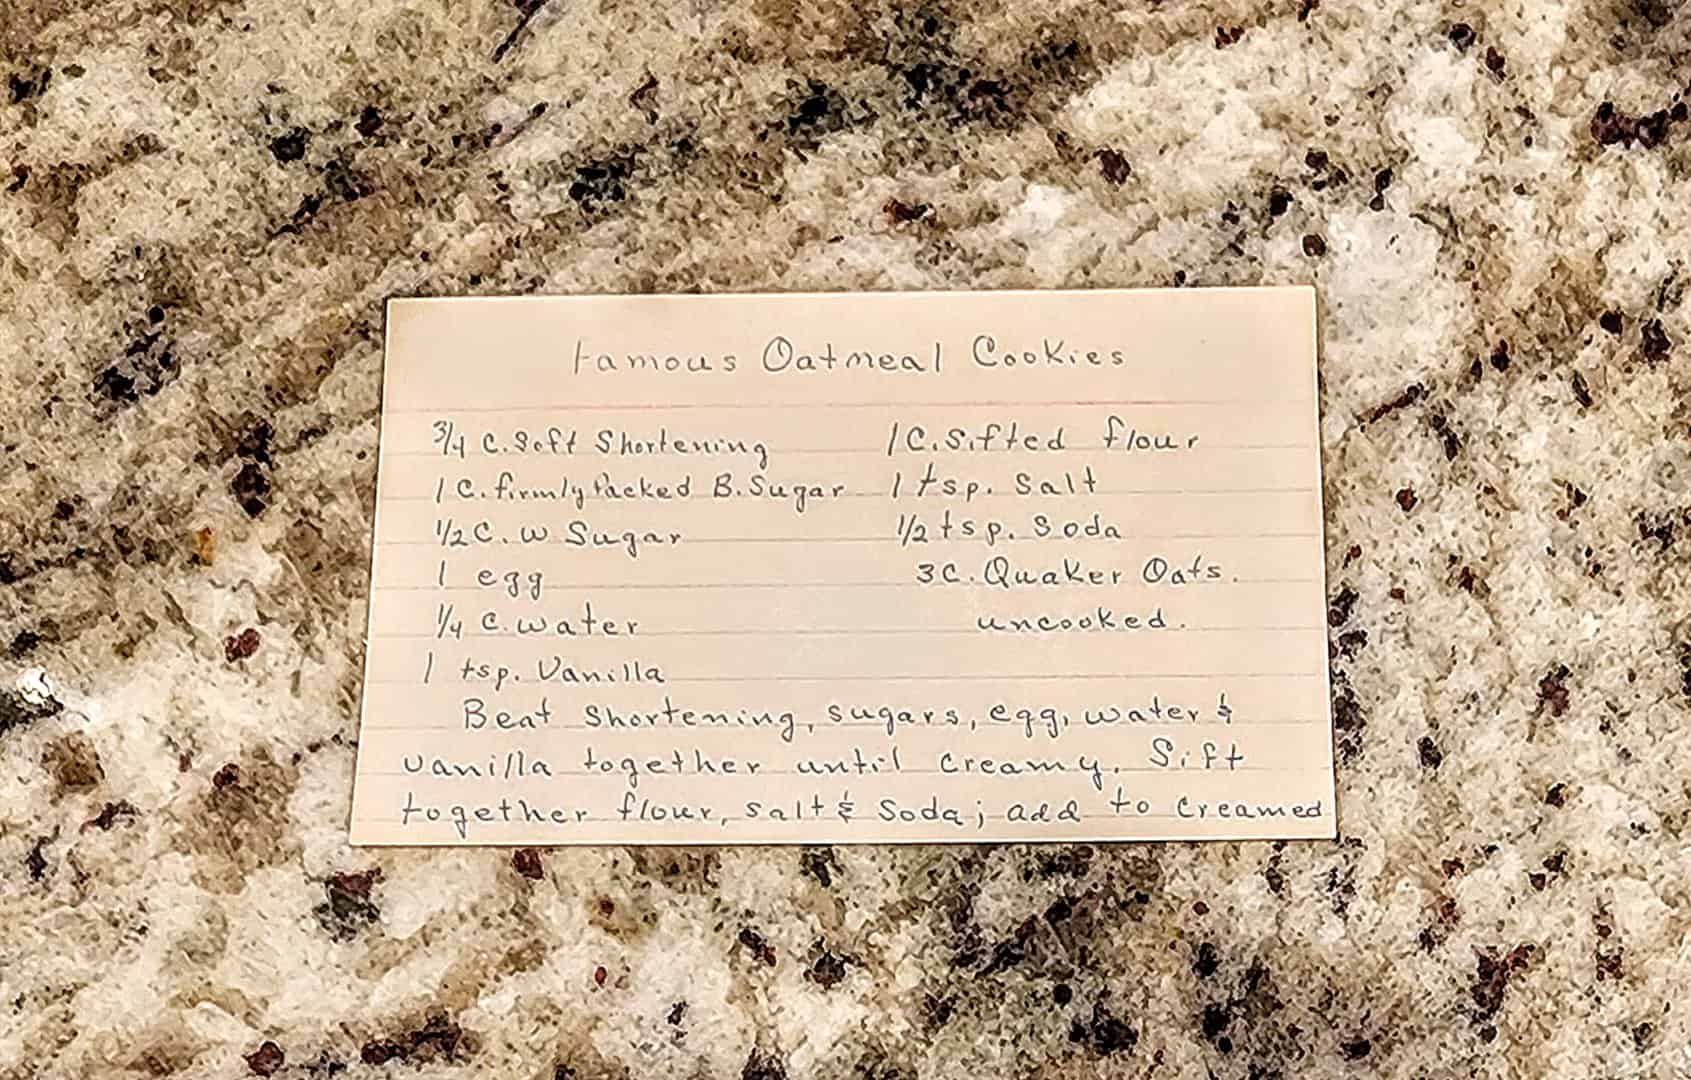 Famous Oatmeal Cookies
3/4 C. Soft Shortening
1 C. firmly Packed B. Sugar
1/2 C. w Sugar
1 egg
1/4 C. water
1 tsp. Vanilla
1 C. Sifted flour
1 tsp. Salt
1/2 tsp. Soda
3 C. Quaker Oats.
uncooked.
Beat Shortening, sugars, egg, water &
vanilla together until creamy. Sift
together flour, salt & Soda; add to creamed